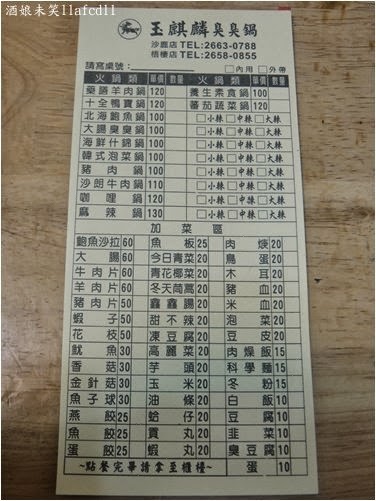 酒娘未笑llafcdll
玉麒麟臭臭鍋
沙鹿店TEL:2663-0788
梧棲店TEL:2658-0855
請寫桌號: □內用 □外帶
火鍋類 單價 數量 火鍋類 單價 數量
藥膳羊肉鍋 120 養生素食鍋 100
十全鴨寶鍋 120 蕃茄蔬菜鍋 100
北海鮑魚鍋 100 □小辣 □中辣 □大辣
大腸臭臭鍋 100 □小辣 □中辣 □大辣
海鮮什錦鍋 100 □小辣 □中辣 □大辣
韓式泡菜鍋 100 □小辣 □中辣 □大辣
豬肉鍋 100 □小辣 □中辣 □大辣
沙朗牛肉鍋 110 □小辣 □中辣 □大辣
咖哩鍋 120 □小辣 □中辣 □大辣
麻辣鍋 130 □小辣 □中辣 □大辣
加菜區
鮑魚沙拉 60 魚板 25 肉焿 20
大腸 60 今日青菜 20 鳥蛋 20
牛肉片 60 青花椰菜 20 木耳 20
羊肉片 60 冬天茼蒿 20 豬血 20
豬肉片 50 鑫鑫腸 20 米血 20
蝦子 50 甜不辣 20 泡菜 20
花枝 50 凍豆腐 20 豆皮 20
魷魚 30 高麗菜 20 肉燥飯 15
香菇 30 芋頭 20 科學麵 15
金針菇 30 玉米 20 冬粉 15
魚子球 30 油條 20 白飯 10
燕餃 25 蛤仔 20 豆腐 10
魚餃 25 貢丸 20 韭菜 10
蛋餃 25 蝦丸 20 臭豆腐 10
~點餐完畢請拿至櫃檯~ 蛋 10